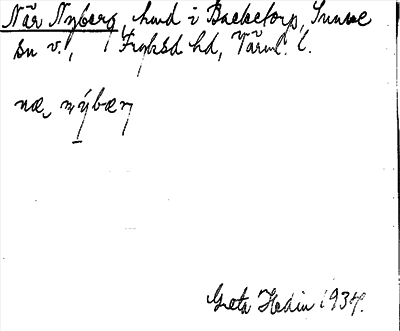 När Nyberg, hmd i Backetorp, Sunne
sn v., Fryksd hd, Värml. l.
næ, nýbærj
Greta Hedin 1934.